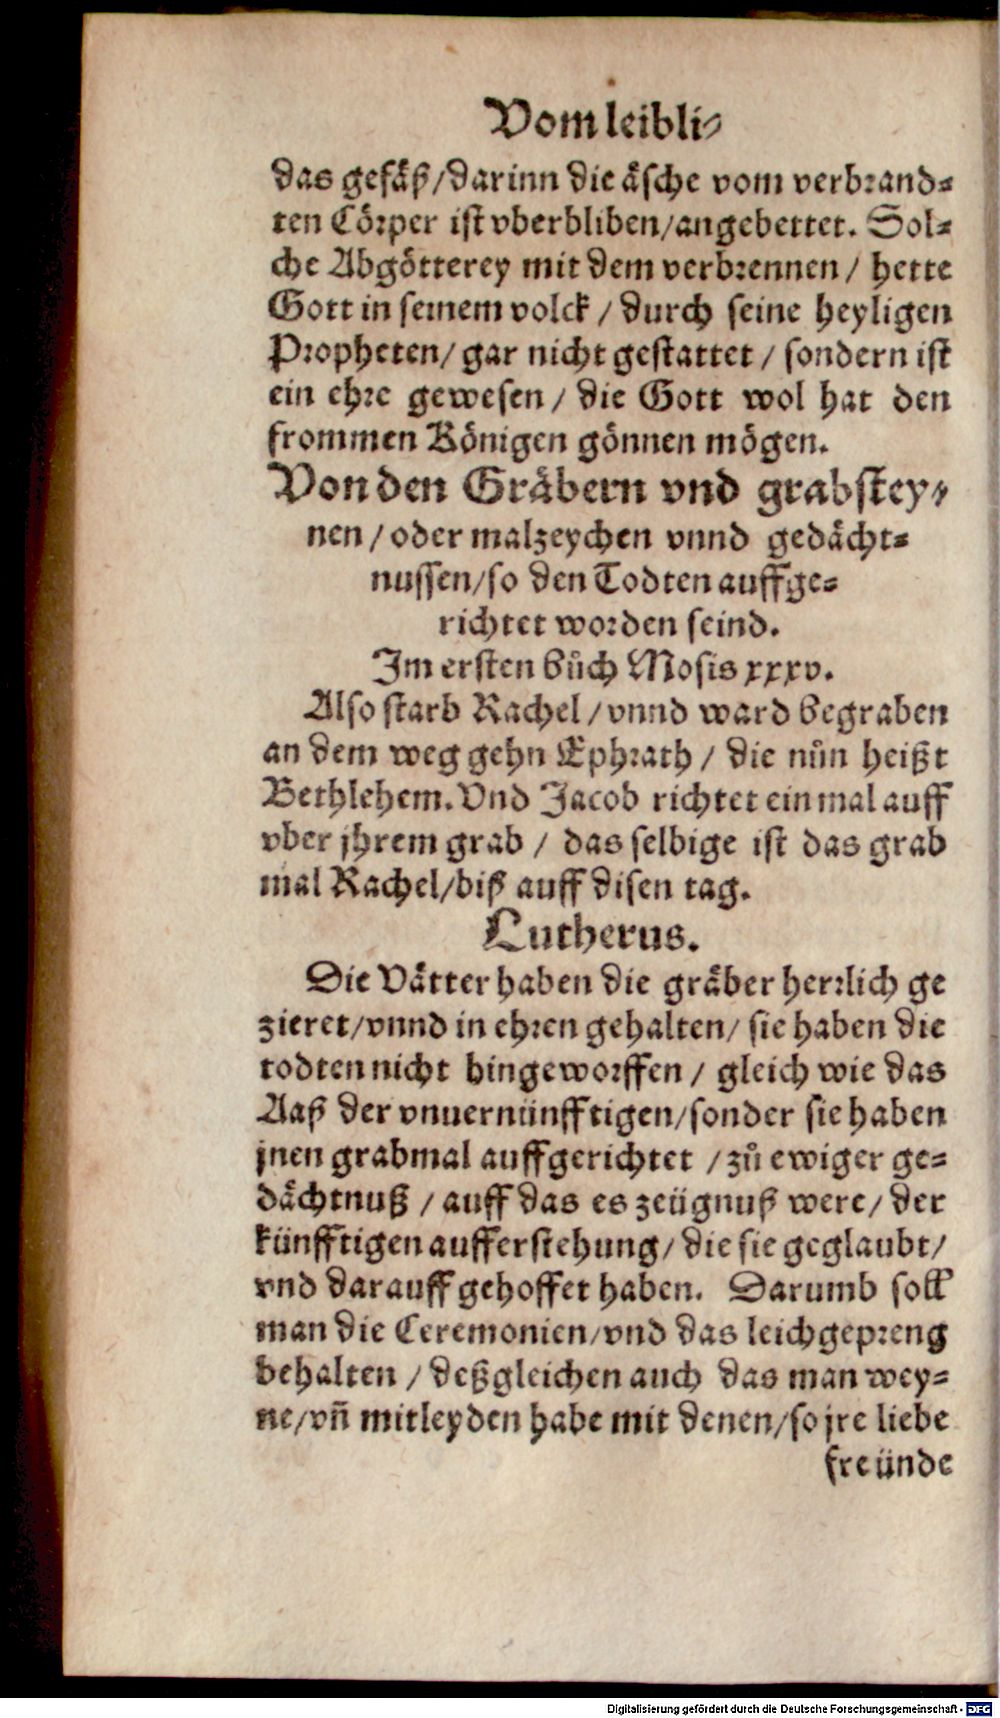 Vom leibli-
das gefäß/darinn die äsche vom verbrand-
ten Cörper ist vberbliben/angebettet. Sol-
che Abgötterey mit dem verbrennen / hette
Gott in seinem volck / durch seine heyligen
Propheten/ gar nicht gestattet / sondern ist
ein ehre gewesen / die Gott wol hat den
frommen Königen gönnen mögen.
Von den Gräbern vnd grabstey-
nen / oder malzeychen vnnd gedächt-
nussen/so den Todten auffge-
richtet worden seind.
Im ersten bůch Mosis xxxv.
Also starb Rachel / vnnd ward begraben
an dem weg gehn Ephrath / die nůn heißt
Bethlehem. Vnd Jacob richtet ein mal auff
vber jhrem grab / das selbige ist das grab
mal Rachel/biß auff disen tag.
Lutherus.
Die Vätter haben die gräber herrlich ge
zieret/vnnd in ehren gehalten/ sie haben die
todten nicht hingeworffen / gleich wie das
Aaß der vnuernünfftigen/sonder sie haben
jnen grabmal auffgerichtet / zů ewiger ge-
dächtnuß / auff das es zeügnuß were/ der
künfftigen aufferstehung/ die sie geglaubt/
vnd darauff gehoffet haben. Darumb soll
man die Ceremonien/vnd das leichgepreng
behalten / deßgleichen auch das man wey-
ne/vñ mitleyden habe mit denen/so jre liebe
freünde
Digitalisierung gefördert durch die Deutsche Forschungsgemeinschaft - DFG